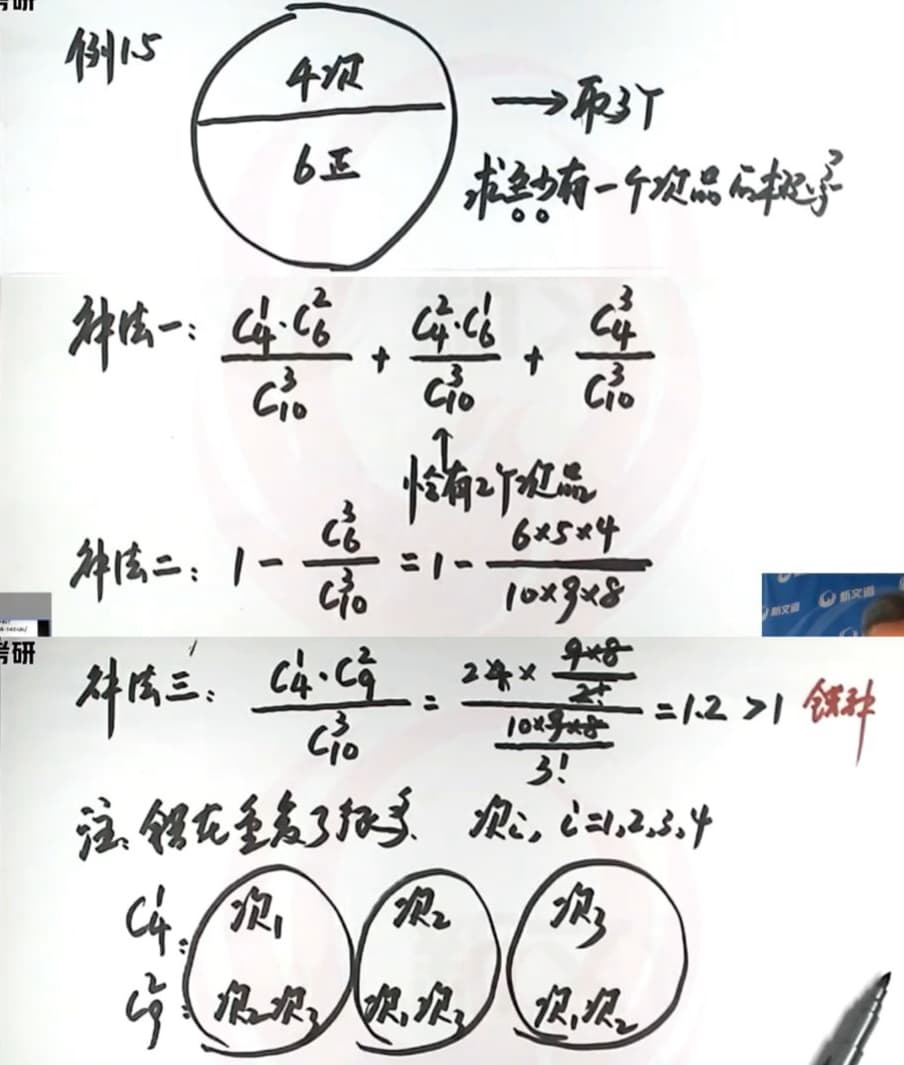 考研
例15
4次
6正
→取3个
求至少有一个次品的概率?
解法一: (C₄¹·C₆²)/C₁₀³ + (C₄²·C₆¹)/C₁₀³ + C₄³/C₁₀³
↑
恰有2个次品
解法二: 1 - C₆³/C₁₀³ = 1 - (6×5×4)/(10×9×8)
新文道 新文道
考研
解法三: (C₄¹·C₉²)/C₁₀³ = (4×(9×8)/2!)/((10×9×8)/3!) = 1.2 >1 错解
注: 错在重复了很多. 次i, i=1,2,3,4
C₄¹: 次₁ 次₂ 次₃
C₉²: 次₂次₃ 次₁次₃ 次₁次₂